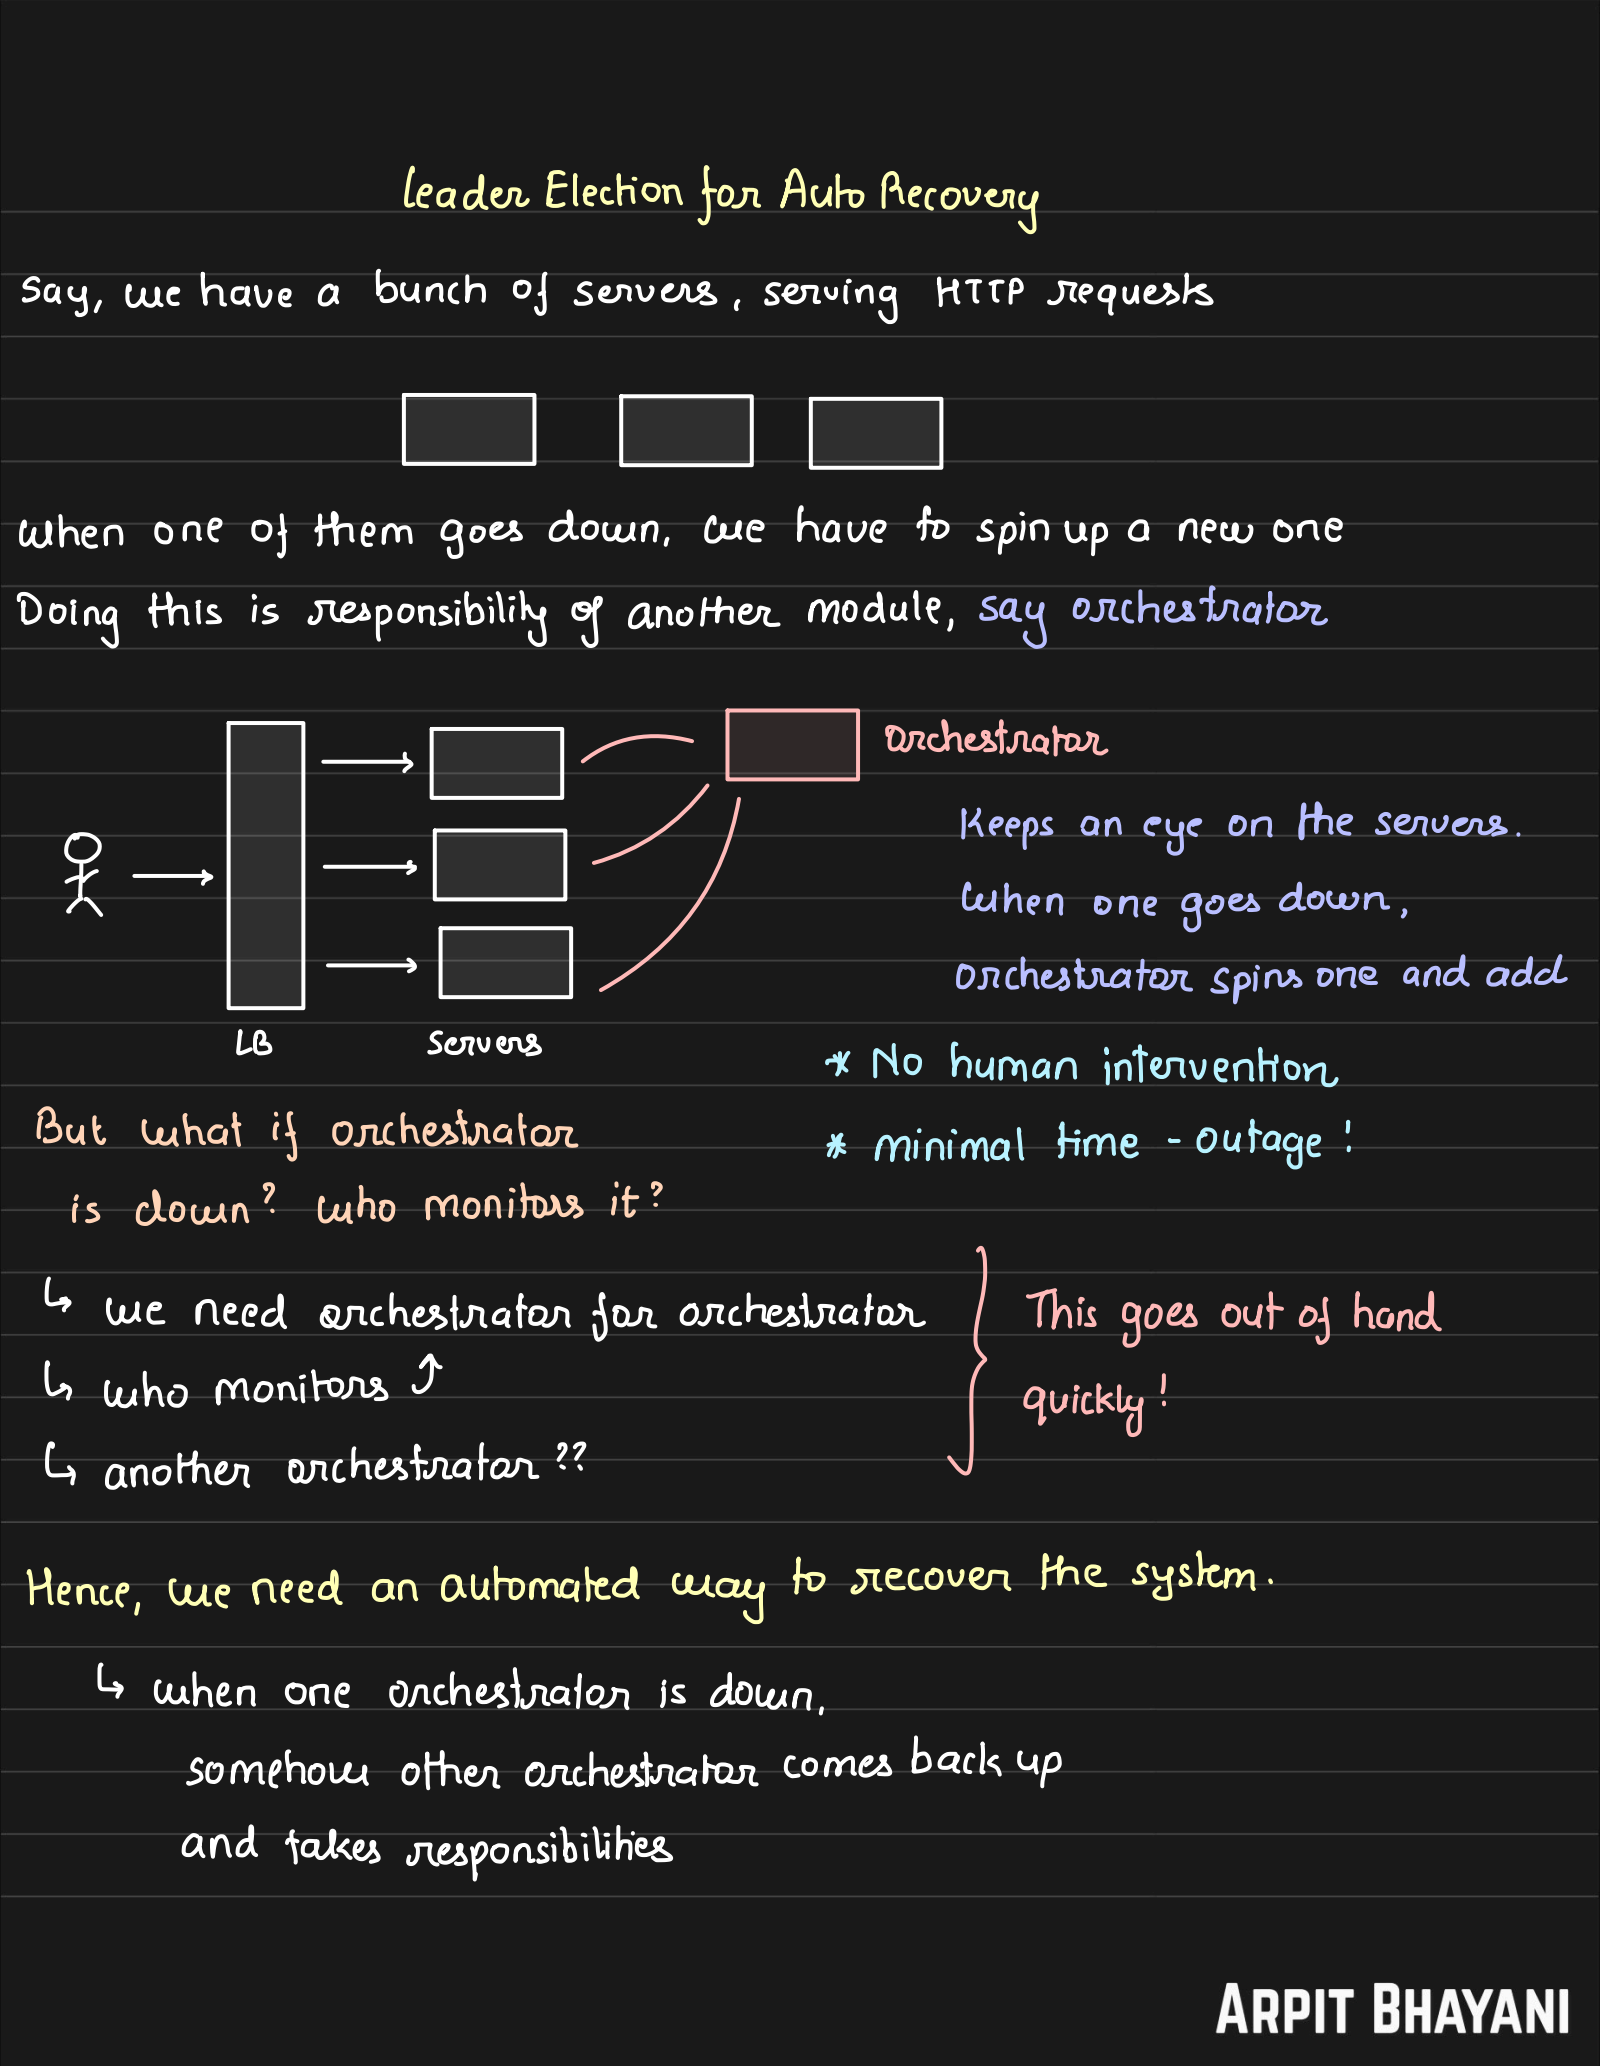 Leader Election for Auto Recovery
Say, we have a bunch of servers, serving HTTP requests
when one of them goes down, we have to spin up a new one
Doing this is responsibility of another module, say orchestrator
Orchestrator
Keeps an eye on the servers.
When one goes down,
orchestrator spins one and add
LB
Servers
* No human intervention
* minimal time - outage !
But what if orchestrator
is down? who monitors it?
↳ we need orchestrator for orchestrator
↳ who monitors ⤴
↳ another orchestrator ??
This goes out of hand
quickly !
Hence, we need an automated way to recover the system.
↳ when one orchestrator is down,
somehow other orchestrator comes back up
and takes responsibilities
ARPIT BHAYANI